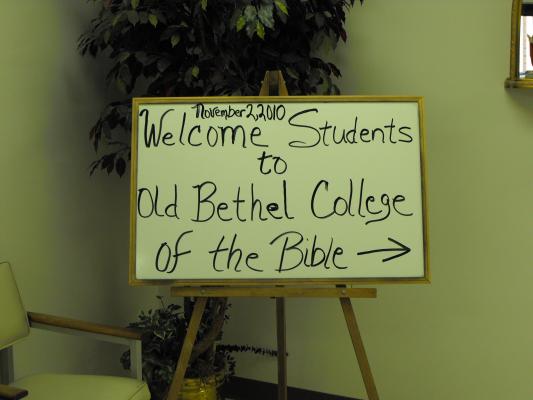 November 2, 2010
Welcome Students
to
Old Bethel College
of the Bible →